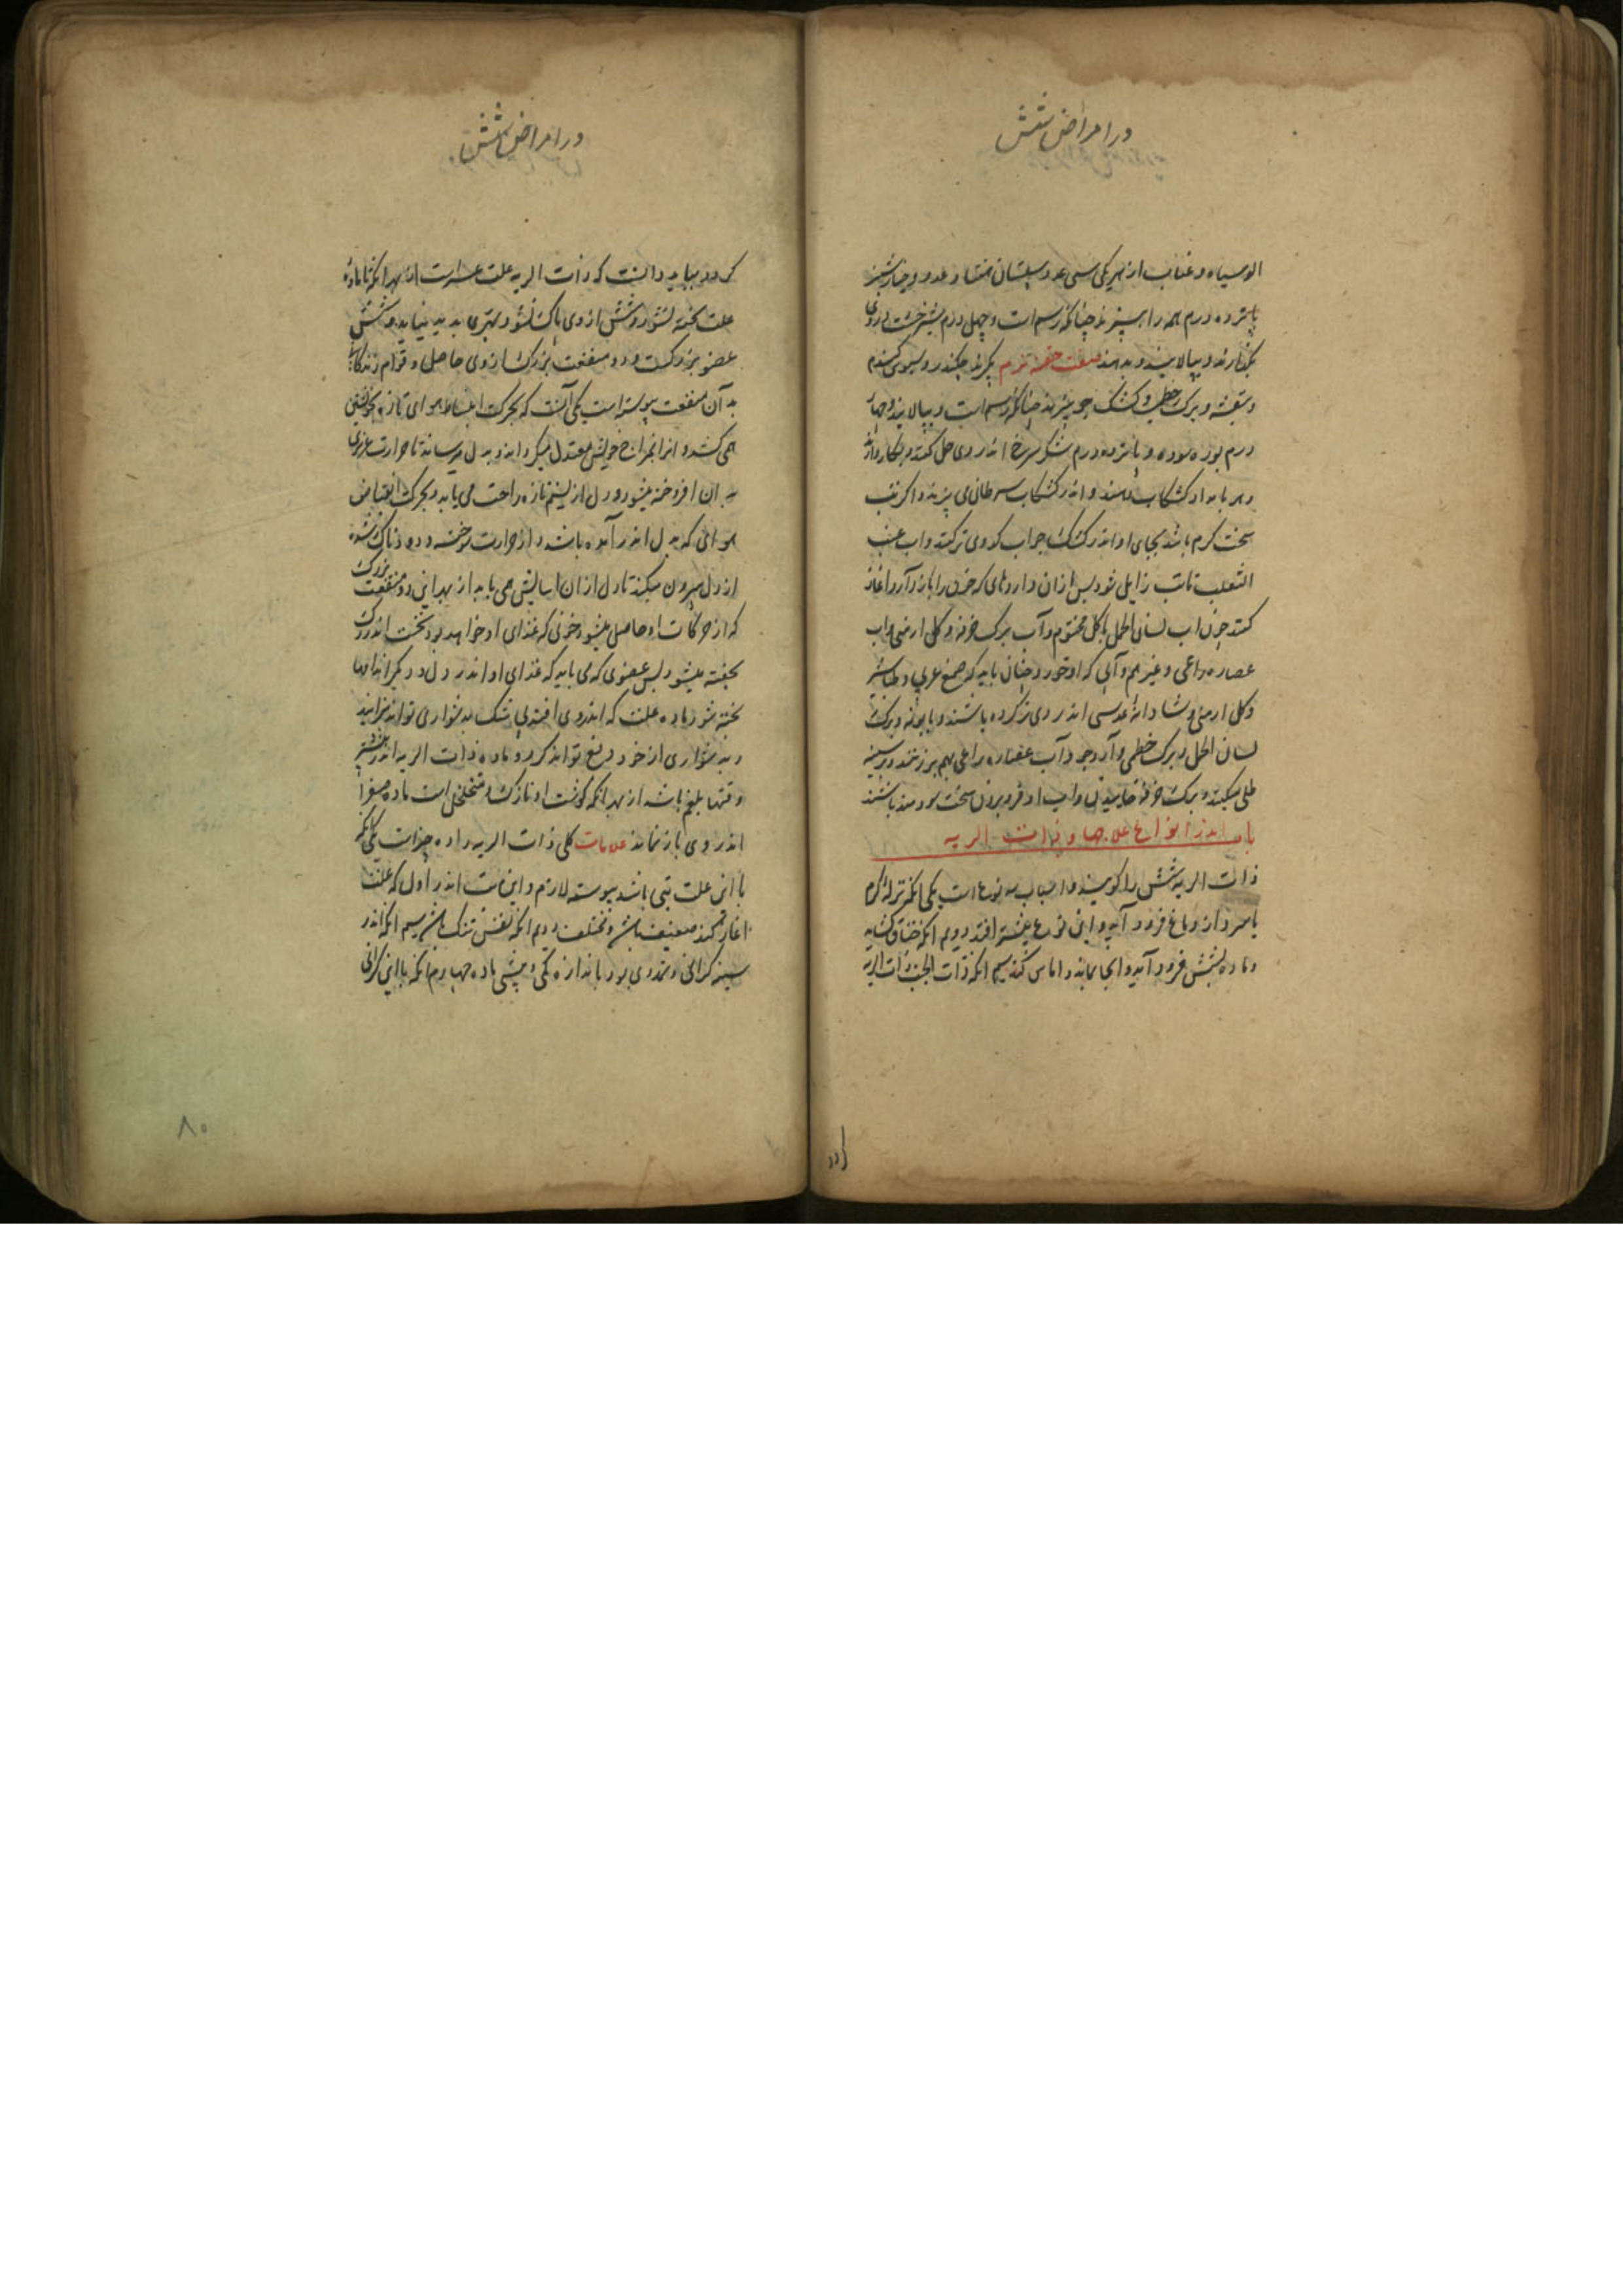 در امراض شش
الوسیاه و عناب از هر یکی سی عدد سپستان هفتاد عدد و خیارشنبر
پانزده درم همه را بپزند چنانکه رسم است و چهل درم شیر خشت در وی
بگذارند و بپالایند و بدهند صفت حقنه نرم بگیرند چکندر و سبوس گندم
و بنفشه و برک خطمی و کشک جو بپزند چنانکه رسم است و بپالایند و چهار
درم بوزه سوده و پانزده درم شکر سرخ اندر وی حل کنند و بکار دارند
و هر بامداد کشکاب دهند و اندر کشکاب سرطان می پزند و اگر تب
سخت گرم باشد بجای او اندر کشک جو آب کدوی تر کنند و اب عنب
الثعلب تا تب زایل شود پس ازان داروهای که خون را باز دارد آغاز
کنند چون اب لسان الحمل با کل مختوم و آب برک خرفه و کل ارمنی و اب
عصاره راعی و غیر هم و آبی که او خورد چنان باید که صمغ عربی و طباشیر
و کل ارمنی و شادانه عدسی اندر وی تر کرده باشند و بابونه و برک
لسان الحمل و برک خطمی و آرد جو و آب عصاره راعی بهم برزنند و بر سینه
طلی میکنند و برک خرفه خاییدن و اب او فرو بردن سخت سودمند باشد
باب اندر انواع علاجها و ذات الریه
ذات الریه شش را کویند و اسباب سه نوع است یکی انکه نزله گرم
یا سرد از دماغ فرود آید و این نوع بیشتر افتد دویم انکه خناق گشاید
و ماده بشش فرود آید و انجا بماند و اماس کند سیم انکه ذات الجنب ذات الریه
در امراض شش
گردد بباید دانست که ذات الریه علت عسر است از بهر انکه تا ماده
علت پخته نشود و شش از وی پاک نشود بهتری پدید نیاید و شش
عضو بزرکست و دو منفعت بزرک از وی حاصل و قوام زندگانی
به آن منفعت پیوسته است یکی آنست که بحرکت انبساط هوای تازه بخویشتن
همی کشد و انرا بمزاج خویش معتدل میگرداند و بدل میرساند تا حرارت غریزی
به ان افروخته میشود و دل از نسیم تازه راحت می یابد و بحرکت انقباض
هوائی که بدل اندر آمده باشد و از حرارت سوخته و دودناک شده
از دل بیرون میکند تا دل ازان اسایش می یابد از بهر این دو منفعت بزرک
که از حرکات او حاصل میشود خونی که غذای او خواهد بود نخست اندر دل
پخته میشود پس عضوی که می باید که غذای او اندر دل و دیگر اندامها
پخته شود ماده علت که اندروی افتد بی شک بدشواری تواند پزانید
و بدشواری از خود دفع تواند کرد و ماده ذات الریه اندر بیشتر
وقتها بلغم باشد از بهر انکه کوشت او نازک و متخلخل است ماده صفرا
اندر وی باز نماند علامات کلی ذات الریه را ده چیز است یکی انکه
با این علت تبی باشد پیوسته لازم و این تب اندر اول که علت
اغاز کند ضعیف باشد و مختلف دویم انکه نفس تنک باشد سیم انکه اندر
سینه گرانی و تمددی بود باندازه کمی و بیشی ماده چهارم انکه با این گرانی
۸۰